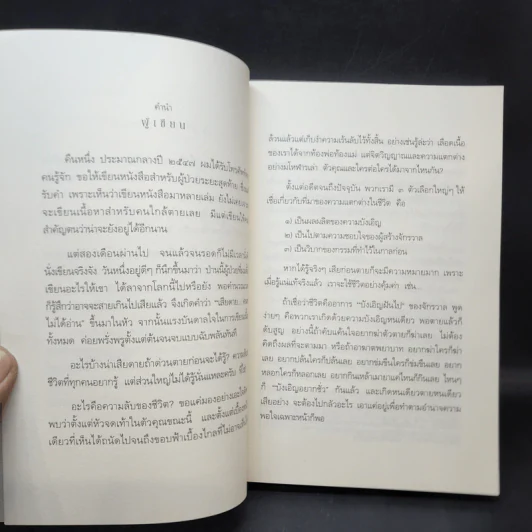 คำนำ
ผู้เขียน
คืนหนึ่ง ประมาณกลางปี ๒๕๔๗ ผมได้รับโทรศัพท์จาก
คนรู้จัก ขอให้เขียนหนังสือสำหรับผู้ป่วยระยะสุดท้าย
รับคำ เพราะเห็นว่าเขียนหนังสือมาหลายเล่ม ยังไม่เคย
จะเขียนเนื้อหาสำหรับคนใกล้ตายเลย มีแต่เขียนให้
สำคัญตนว่าน่าจะยังอยู่ได้อีกนาน
แต่สองเดือนผ่านไป จนแล้วจนรอดก็ไม่มีเวลา
นั่งเขียนจริงจัง วันหนึ่งอยู่ดีๆ ก็นึกขึ้นมาว่า ป่านนี้ผู้ป่วยที่
เขียนอะไรให้เขา ได้ลาจากโลกนี้ไปหรือยัง พอคำ
ก็รู้สึกว่าอาจจะสายเกินไปเสียแล้ว จึงเกิดคำว่า "เสียดาย...
ไม่ได้อ่าน" ขึ้นมาในหัว จากนั้นแรงบันดาลใจในการเขียน
ทั้งหมด ค่อยพรั่งพรูตั้งแต่ต้นจนจบแบบฉับพลันทันที
อะไรบ้างน่าเสียดายถ้าด่วนตายก่อนจะได้รู้?
ชีวิตที่ทุกคนอยากรู้ แต่ส่วนใหญ่ไม่ได้รู้นั่นแหละครับ
อะไรคือความลับของชีวิต? ขอแค่มองอย่าง
พบว่าตั้งแต่หัวจดเท้าในตัวคุณขณะนี้ และตั้งแต่
เดียวที่เห็นได้ถนัดไปจนถึงขอบฟ้าเบื้องไกลที่ไม่อาจ
ล้วนแล้วแต่เก็บงำความเร้นลับไว้ทั้งสิ้น อย่างเช่นรู้ล่ะว่า เลือดเนื้อ
ของเราได้จากท้องพ่อท้องแม่ แต่จิตวิญญาณและความแตกต่าง
อย่างมโหฬารเล่า ตัวคุณและใครต่อใครได้มาจากไหนกัน?
ตั้งแต่อดีตจนถึงปัจจุบัน พวกเรามี ๓ ตัวเลือกใหญ่ๆ ให้
เชื่อเกี่ยวกับที่มาของความแตกต่างในชีวิต คือ
๑) เป็นผลผลิตของความบังเอิญ
๒) เป็นไปตามความชอบใจของผู้สร้างจักรวาล
๓) เป็นวิบากของกรรมที่ทำไว้ในกาลก่อน
หากได้รู้จริงๆ เสียก่อนตายก็จะมีความหมายมาก เพราะ
เมื่อรู้แน่แท้จริงแล้ว เราจะใช้ชีวิตอย่างคุ้มค่า เช่น...
ถ้าเชื่อว่าชีวิตคืออาการ "บังเอิญฝันไป" ของจักรวาล พูด
ง่ายๆ คือพวกเราเกิดกันด้วยความบังเอิญหนเดียว พอตายแล้วก็
ดับสูญ อย่างนี้ถ้าดับแค้นใจอยากฆ่าตัวตายก็ฆ่าเลย ไม่ต้อง
คิดถึงผลที่จะตามมา หรือถ้าอาฆาตพยาบาท อยากฆ่าใครก็ฆ่า
เลย อยากปล้นใครก็ปล้นเลย อยากข่มขืนใครก็ข่มขืนเลย อยาก
หลอกใครก็หลอกเลย อยากกินเหล้าเมายาแค่ไหนก็กินเลย ไหนๆ
ก็ "บังเอิญอยากชั่ว" กันแล้ว และเกิดหนเดียวตายหนเดียว
เสียอย่าง จะต้องไปกลัวอะไร เอาแต่อยู่เพื่อทำตามอำนาจความ
พอใจเฉพาะหน้าก็พอ